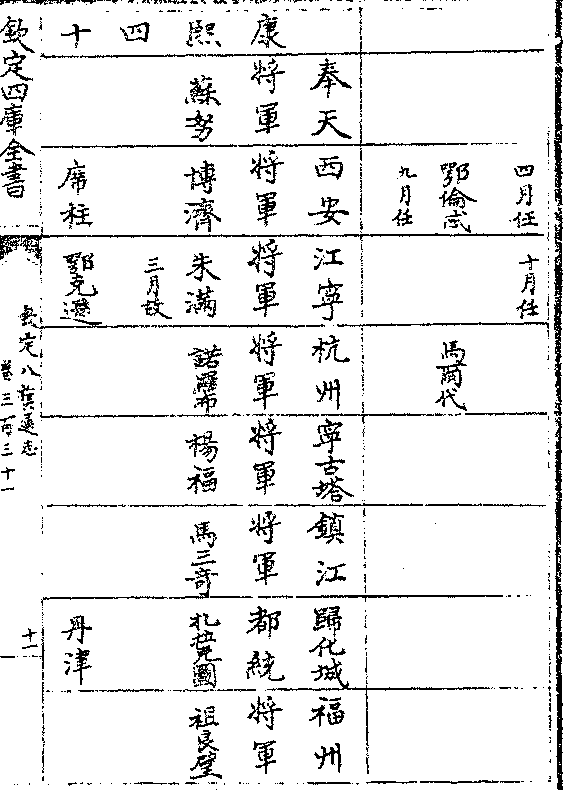 四月任
十月任
鄂倫
馬爾代
九月任
奉天 西安 江寧 杭州 寧古塔 鎮江 歸化城 福州
康 將軍 將軍 將軍 將軍 將軍 將軍 都統 將軍
熙 蘇努 博濟 朱滿 諾羅布 楊福 馬三奇 扎拉克圖 祖良璧
四 三月故
十 席柱 鄂克遜 丹津
欽定四庫全書
欽定八旗通志
卷三百三十一
十一